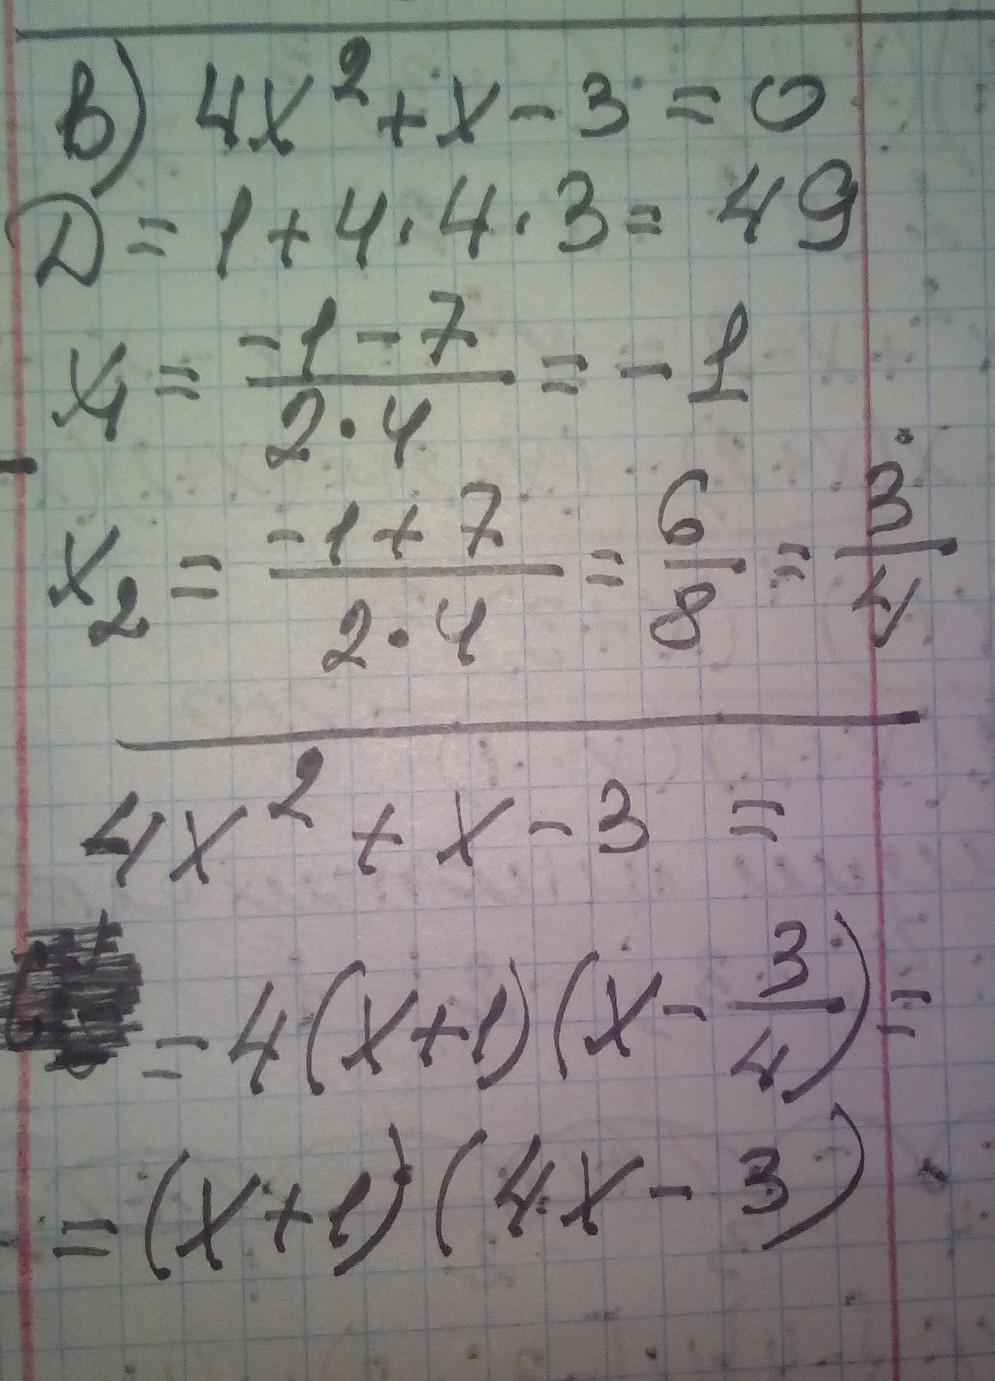 в) 4x² + x - 3 = 0
D = 1 + 4 · 4 · 3 = 49
x₁ = (-1 - 7)/(2 · 4) = -1
x₂ = (-1 + 7)/(2 · 4) = 6/8 = 3/4
4x² + x - 3 =
= 4(x+1)(x - 3/4) =
= (x+1)(4x - 3)